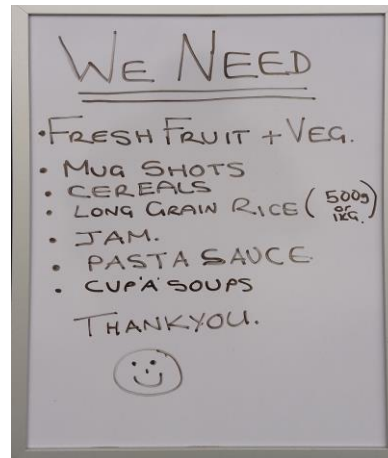 WE NEED
• FRESH FRUIT + VEG.
• MUG SHOTS
• CEREALS
• LONG GRAIN RICE (500g or 1KG.)
• JAM.
• PASTA SAUCE
• CUP'A'SOUPS
THANKYOU.